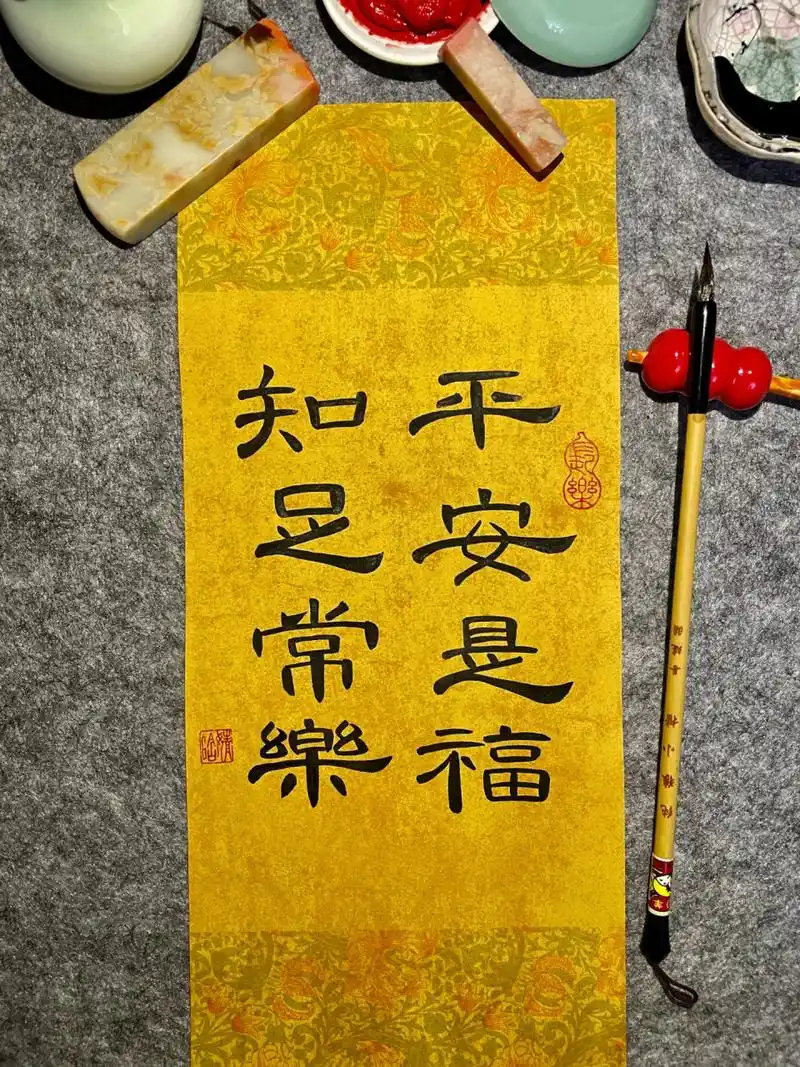 平安是福
知足常樂
長樂